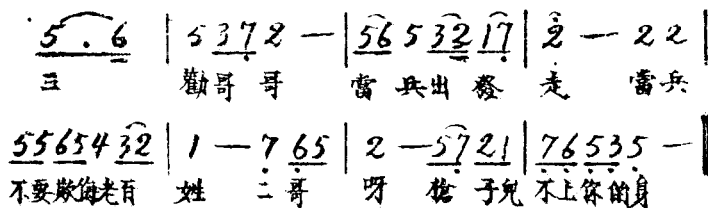 5 . 6 | 5 3 7 2 — | 5 6 5 3 2 1 7 | 2 — 2 2 |
三 勸哥哥 當兵出發 走 當兵
5 5 6 5 4 3 2 | 1 — 7 6 5 | 2 — 5 7 2 1 | 7 6 5 3 5 —
不要欺侮老百 姓 二哥 呀 槍子兒 不上你的身